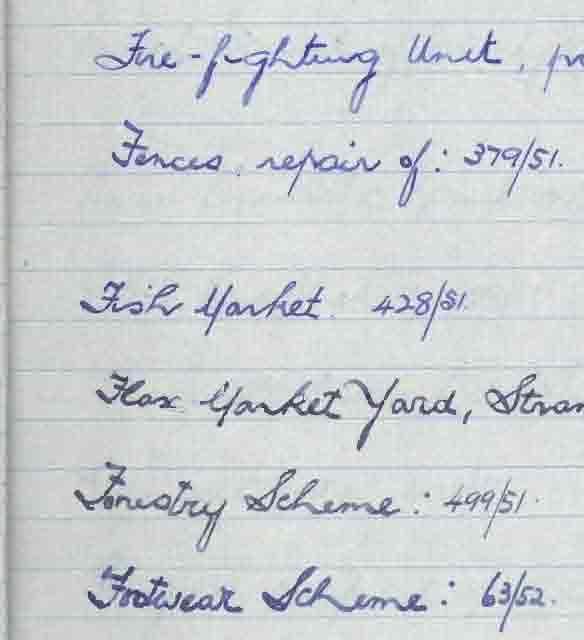 Fire-fighting Unit, pr
Fences, repair of: 379/51.
Fish Market. 428/51.
Flax Market Yard, Stran
Forestry Scheme: 499/51.
Footwear Scheme: 63/52.